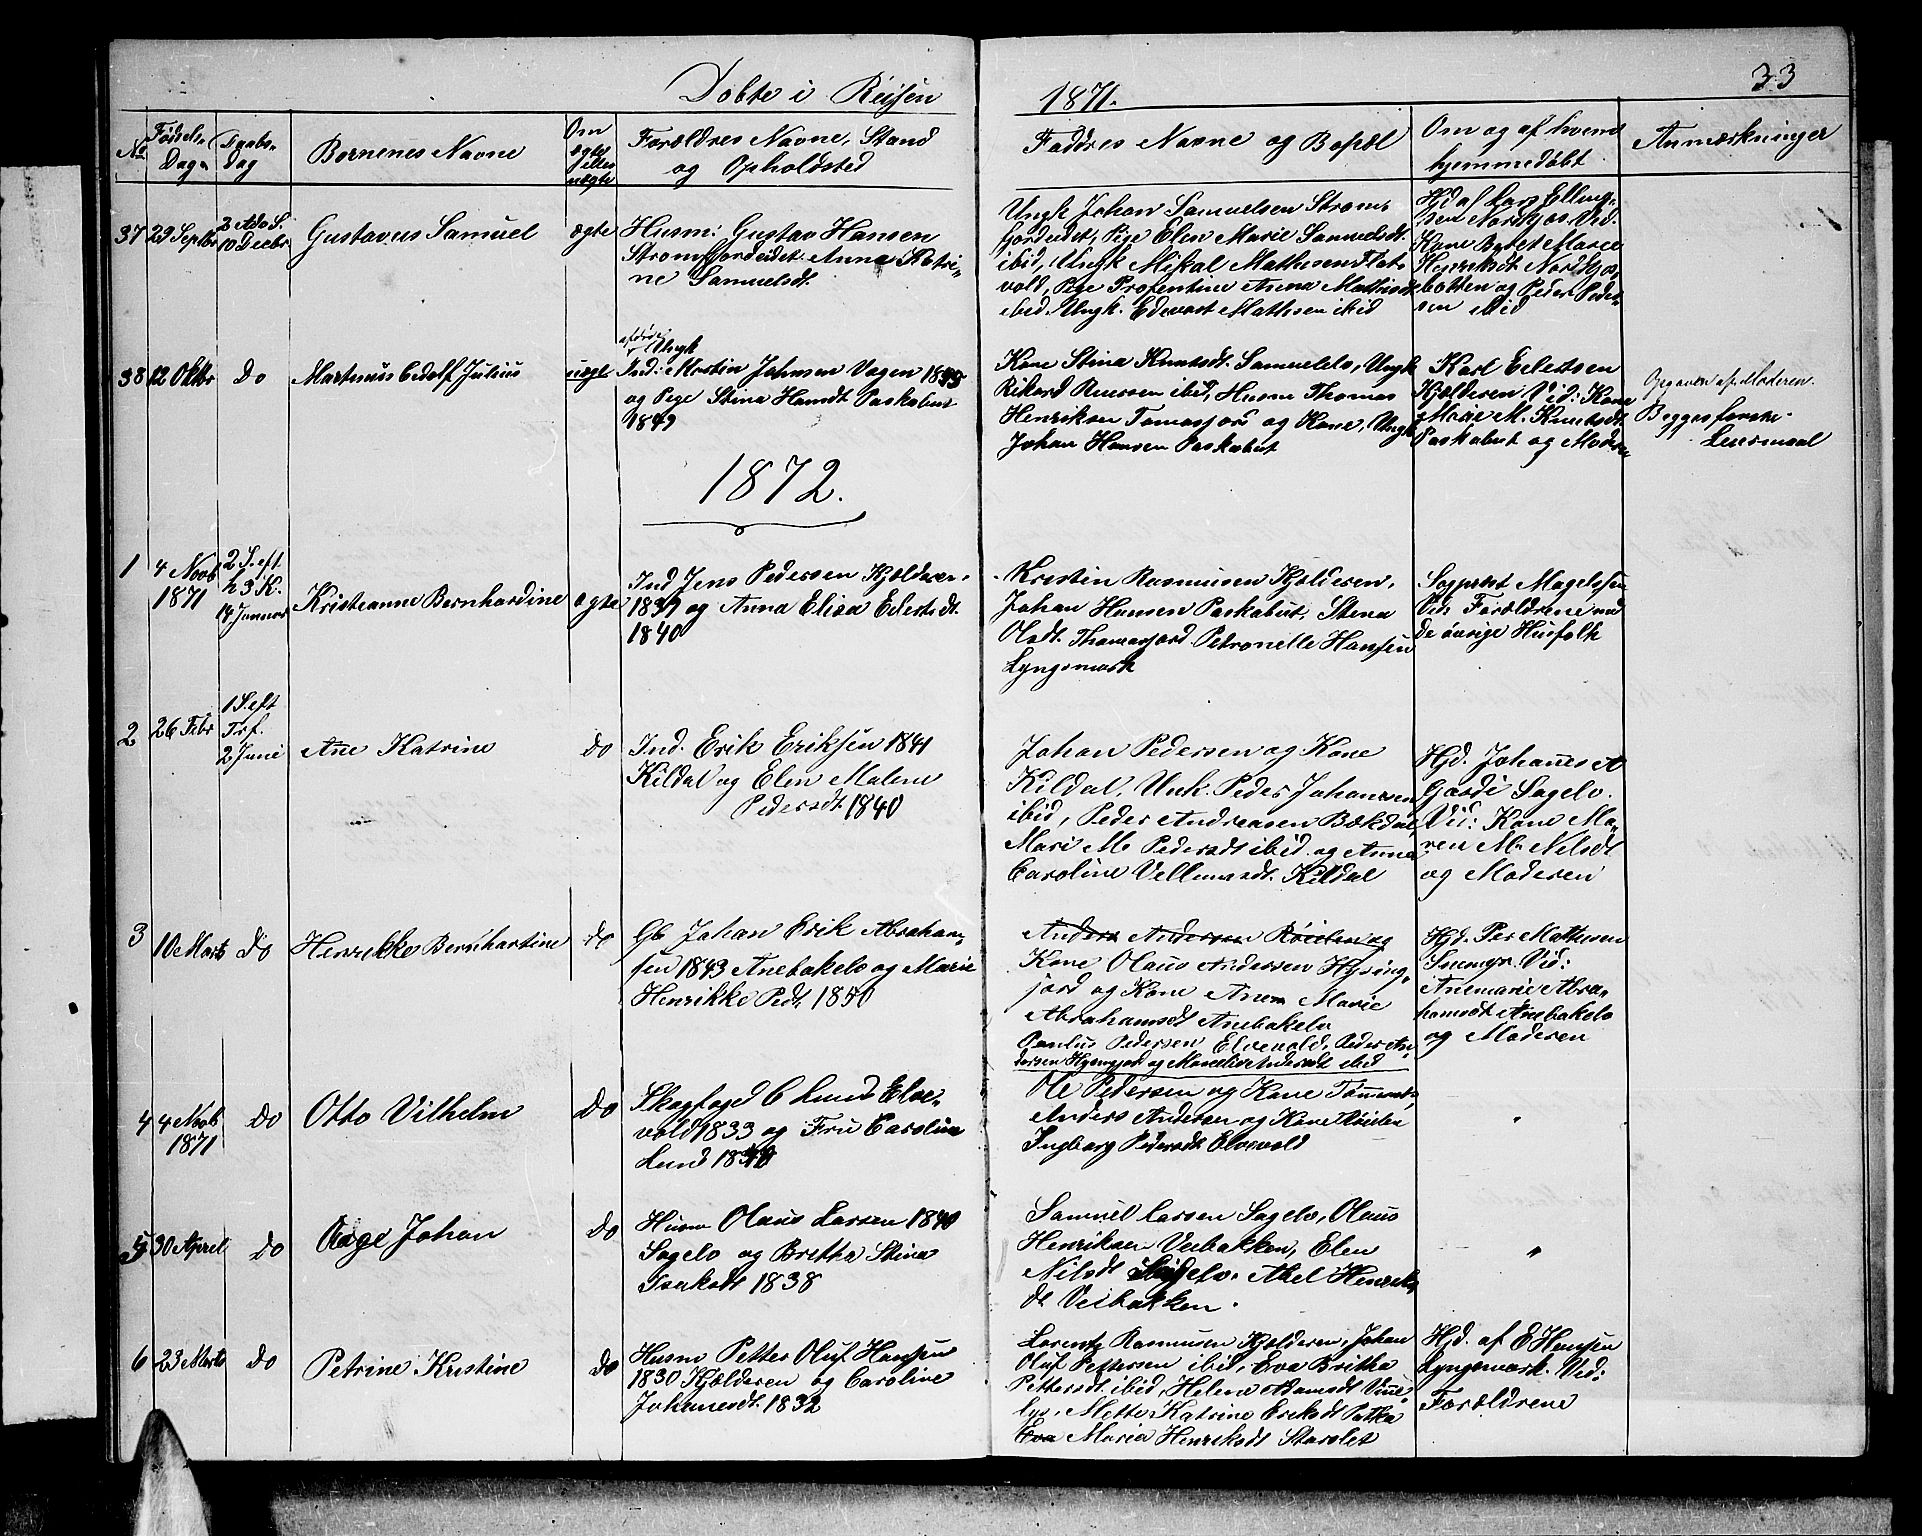 Døbte i Reisen
1871.
33
No
Fødels-
Dag
Daabs-
Dag
Børnenes Navne
Om
ægte
eller
uægte
Forældres Navne, Stand
og Opholdsted
Faddres Navne og Bopæl
Om og af hvem
hjemmedøbt
Anmærkninger
37 29 Septbr
10 Decbr
Gustavus Samuel
ægte
Husm: Gustav Hansen
Strømfjordeidet Anna Katri-
ne Samuelsdt.
Ungk Johan Samuelsen Strøm-
fjordeidet, Pige Elen Marie Samuelsdt.
ibid, Ungk Mikal Mathisen Flat-
vold, Pige Profentine Anna Mathisdt
ibid. Ungk. Edevart Mathisen ibid
Hjd af Lars Elling-
sen Nordkjos. Vid:
Kone Marie
Henriksdt Nordkjos-
botten og Peder Peder-
sen ibid
38 12 Oktbr
do
Martinus Edolf Julius
uægt
Ungk
Ind: Mortin Johnsen Vagen 1845
og Pige Stina Hansdt Paskabut
1849
Kone Stina Knutsdt. Samuelelv, Ungk
Rikard ibid, Husm Thomas
Henriksen Tomasjord og Kone, Ungk
Johan Hansen Paskabut
Karl Eilertsen
Kjelderen Vid: Kone
Marie M. Knutsdt.
Paskabut og Moderen
Opgaven af Moderen.
Begges første
Leiermaal
1872.
1
4 Novb
1871
2 S. eft
h 3 K.
14 Januar
Kristianne Bernhardine
ægte
Ind Jens Pedersen Kjelderen
1837 og Anna Elisa Eilertsdt.
1840
Kristin Rasmusen Kjelderen,
Johan Hansen Paskabut, Stina
Olsdt. Thomasjord. Petronelle Hansen
Lyngsmark
Sogprest Magelssen
Vid: Forældrene med
de øvrige Husfolk
2
26 Febr
1 S. eft
Trf.
2 Juni
Ane Katrine
do
Ind. Erik Eriksen 1841
Kildal og Elen Malene
Pedersdt 1840
Johan Pedersen og Kone
Kildal, Unk. Peder Johannesen
ibid, Peder Andreasen Bækdal,
Mari M. Pedersdt ibid og Anna
Caroline Vellumsdt. Kildal
Hjd. Johannes A
Gardi Sagelv.
Vid: Kone Ma-
ren M. Nilsdt
og Moderen
3
10 Marts
do
Henrikke Bernhartine
do
Gb Johan Erik Abraham-
sen 1843 Anebakelv og Marie
Henrikke Pedt. 1850
Anders Andersen Røielen og
Kone Olaus Andersen Hysing-
jord og Kone Anem Marie
Abrahamsdt Anebakelv
Paulus Pedersen Elvevold, Peder An-
dersen Hysingjord og ibid
Hjd. Per Mathisen
Vid:
Anemarie Abra-
hamsdt Anebakelv
og Moderen
4
4 Novb
1871
do
Otto Vilhelm
do
Skogfoged C Lund Elve-
vold 1833 og Fru Carolina
Lund
Ole Pedersen og Kone
Anders Andersen og Kone Røielen
Ingborg Pedersdt Elvevold
"
5
30 April
do
Aage Johan
do
Husm Olaus Larsen 1840
Sagelv og Britha Stina
Isaksdt 1838
Samuel Larsen Sagelv, Olaus
Henriksen Veibakken, Elen
Nilsdt Sagelv. Abel Henriks-
dt Veibakken.
"
6
23 Marts
do
Petrine Kristine
do
Husm Petter Oluf Hansen
1830 Kjelderen og Caroline
Johannesdt. 1832
Lorentz Rasmusen Kjelderen, Johan
Oluf Pettersen ibid, Eva Britha
Pettersdt. ibid, Helene Adamsdt
Mette Katrine Eriksdt Patka
Eva Maria Henriksdt Storslet
Hjd. af E Hansen
Lyngsmark. Vid:
Forældrene